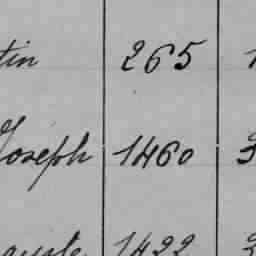 tin 265
Joseph 1460
1422